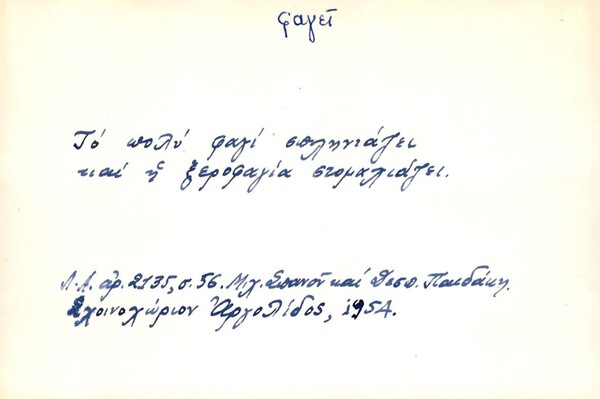 φαγεῖ
Τό πολύ φαγί σπληνιάζει
καί ἡ ξεροφαγία στομαλιάζει.
Λ.Α. ἀρ. 2135, σ. 56. Μιχ. Σπανοῦ καί Δεσπ. Παιδάκη,
Σχοινοχώριον Ἀργολίδος, 1954.